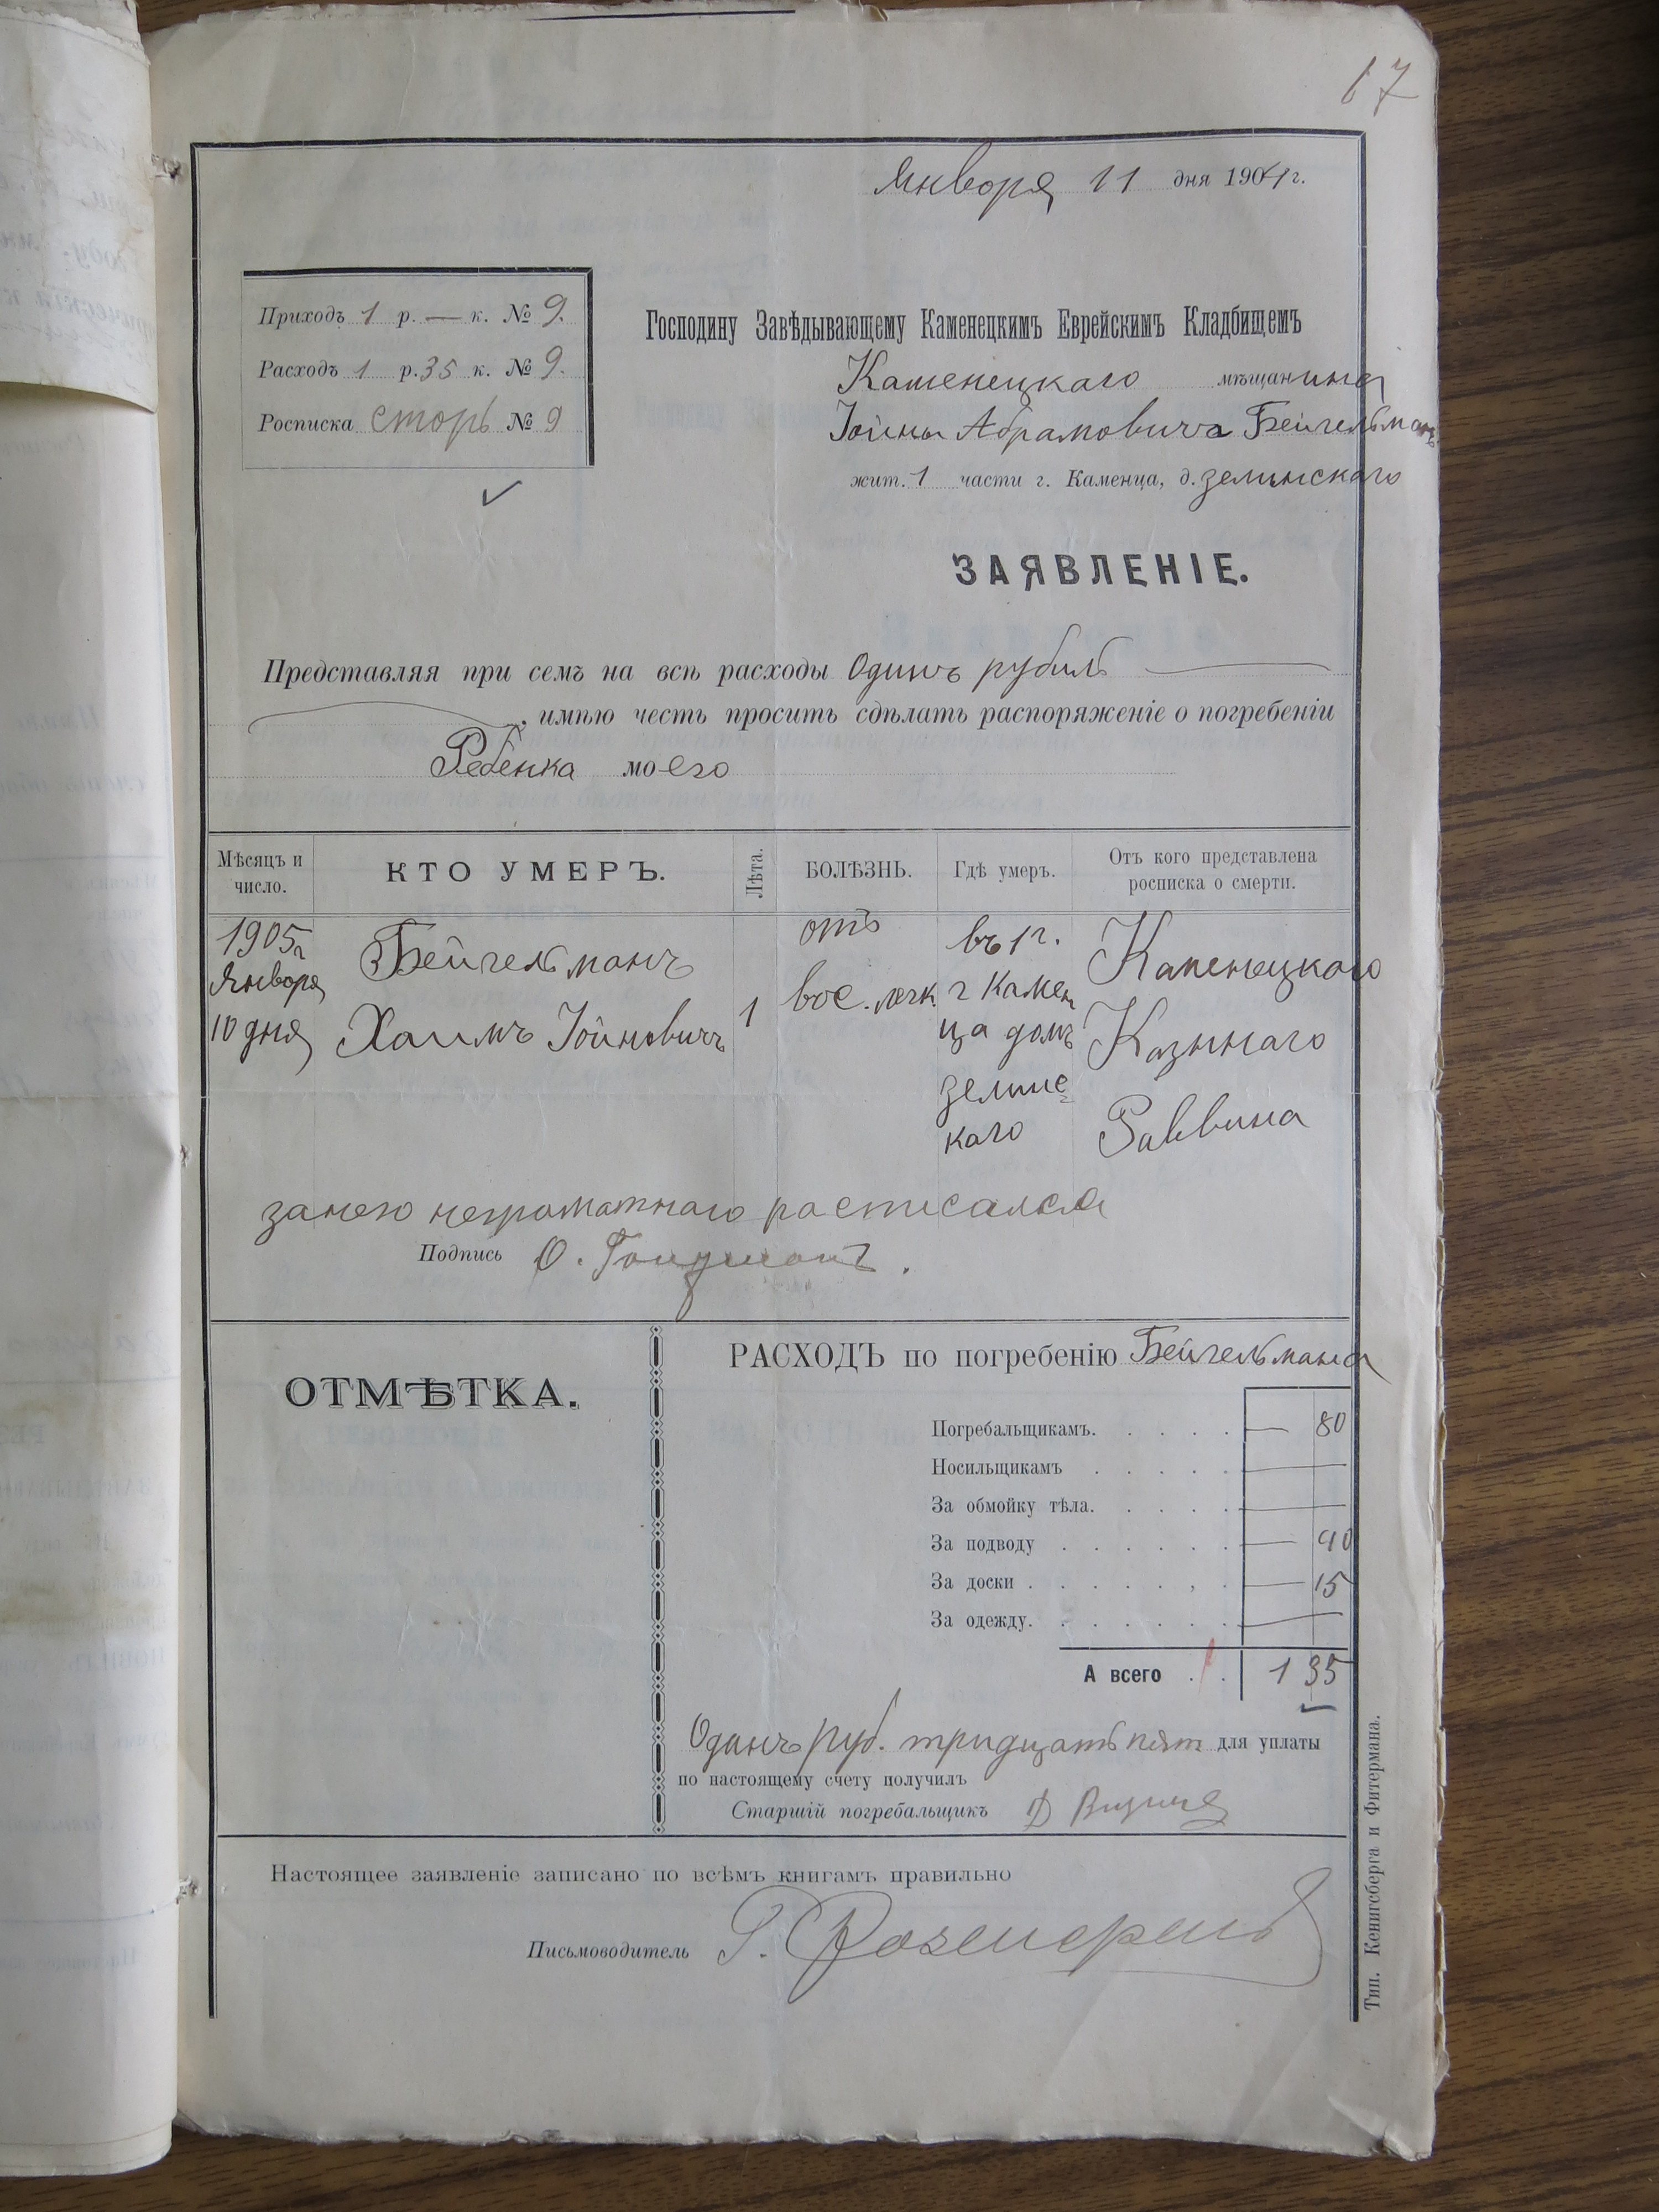 67
Января 11 дня 1904 г.
Приходъ 1 р. — к. № 9.
Расходъ 1 р. 35 к. № 9.
Росписка сторъ № 9
Господину Завѣдывающему Каменецкимъ Еврейскимъ Кладбищемъ
Каменецкаго мѣщанина
Іойны Абрамовича Бейгельмана
жит. 1 части г. Каменца, д. Землинскаго
ЗАЯВЛЕНІЕ.
Представляя при семъ на всѣ расходы Одинъ рубль
, имѣю честь просить сдѣлать распоряженіе о погребеніи
Ребенка моего
Мѣсяцъ и число.
КТО УМЕРЪ.
Лѣта.
БОЛѢЗНЬ.
Гдѣ умеръ.
Отъ кого представлена росписка о смерти.
1905 г
Января
10 дня
Бейгельманъ
Хаимъ Іойновичъ
1
отъ
вос. легк.
въ 1 г.
г Камен
ца домъ
земинс
каго
Каменецкаго
Казыннаго
Раввина
занего неграматнаго расписался
Подпись
ОТМѢТКА.
РАСХОДЪ по погребенію Бейгельмана
Погребальщикамъ. — 80
Носильщикамъ —
За обмойку тѣла. —
За подводу — 40
За доски — 15
За одежду. —
А всего 1 35
Одинъ руб. тридцать пят для уплаты
по настоящему счету получилъ
Старшій погребальщикъ
Настоящее заявленіе записано по всѣмъ книгамъ правильно
Письмоводитель
Тип. Кенигсберга и Фитермана.